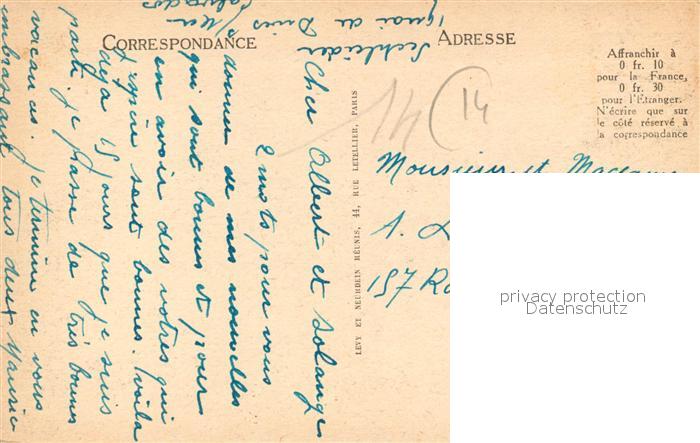 CORRESPONDANCE
ADRESSE
Affranchir à
0 fr. 10
pour la France,
0 fr. 30
pour l'Etranger.
N'écrire que sur
le côté réservé à
la correspondance
14
14
quai de Dives s/Mer
Calvados
Cher Albert et Solange
2 mots pour vous
donner de mes nouvelles
qui sont bonnes et pour
en avoir des votres qui
j'espère sont bonnes. Voila
déja 15 jours que je suis
parti. je passe de très bonnes
vacances. je termine en vous
embrassant tous deux Maurice
LEVY ET NEURDEIN RÉUNIS, 44, RUE LETELLIER, PARIS
Monsieur et Madame
A. L
157 R
privacy protection
Datenschutz